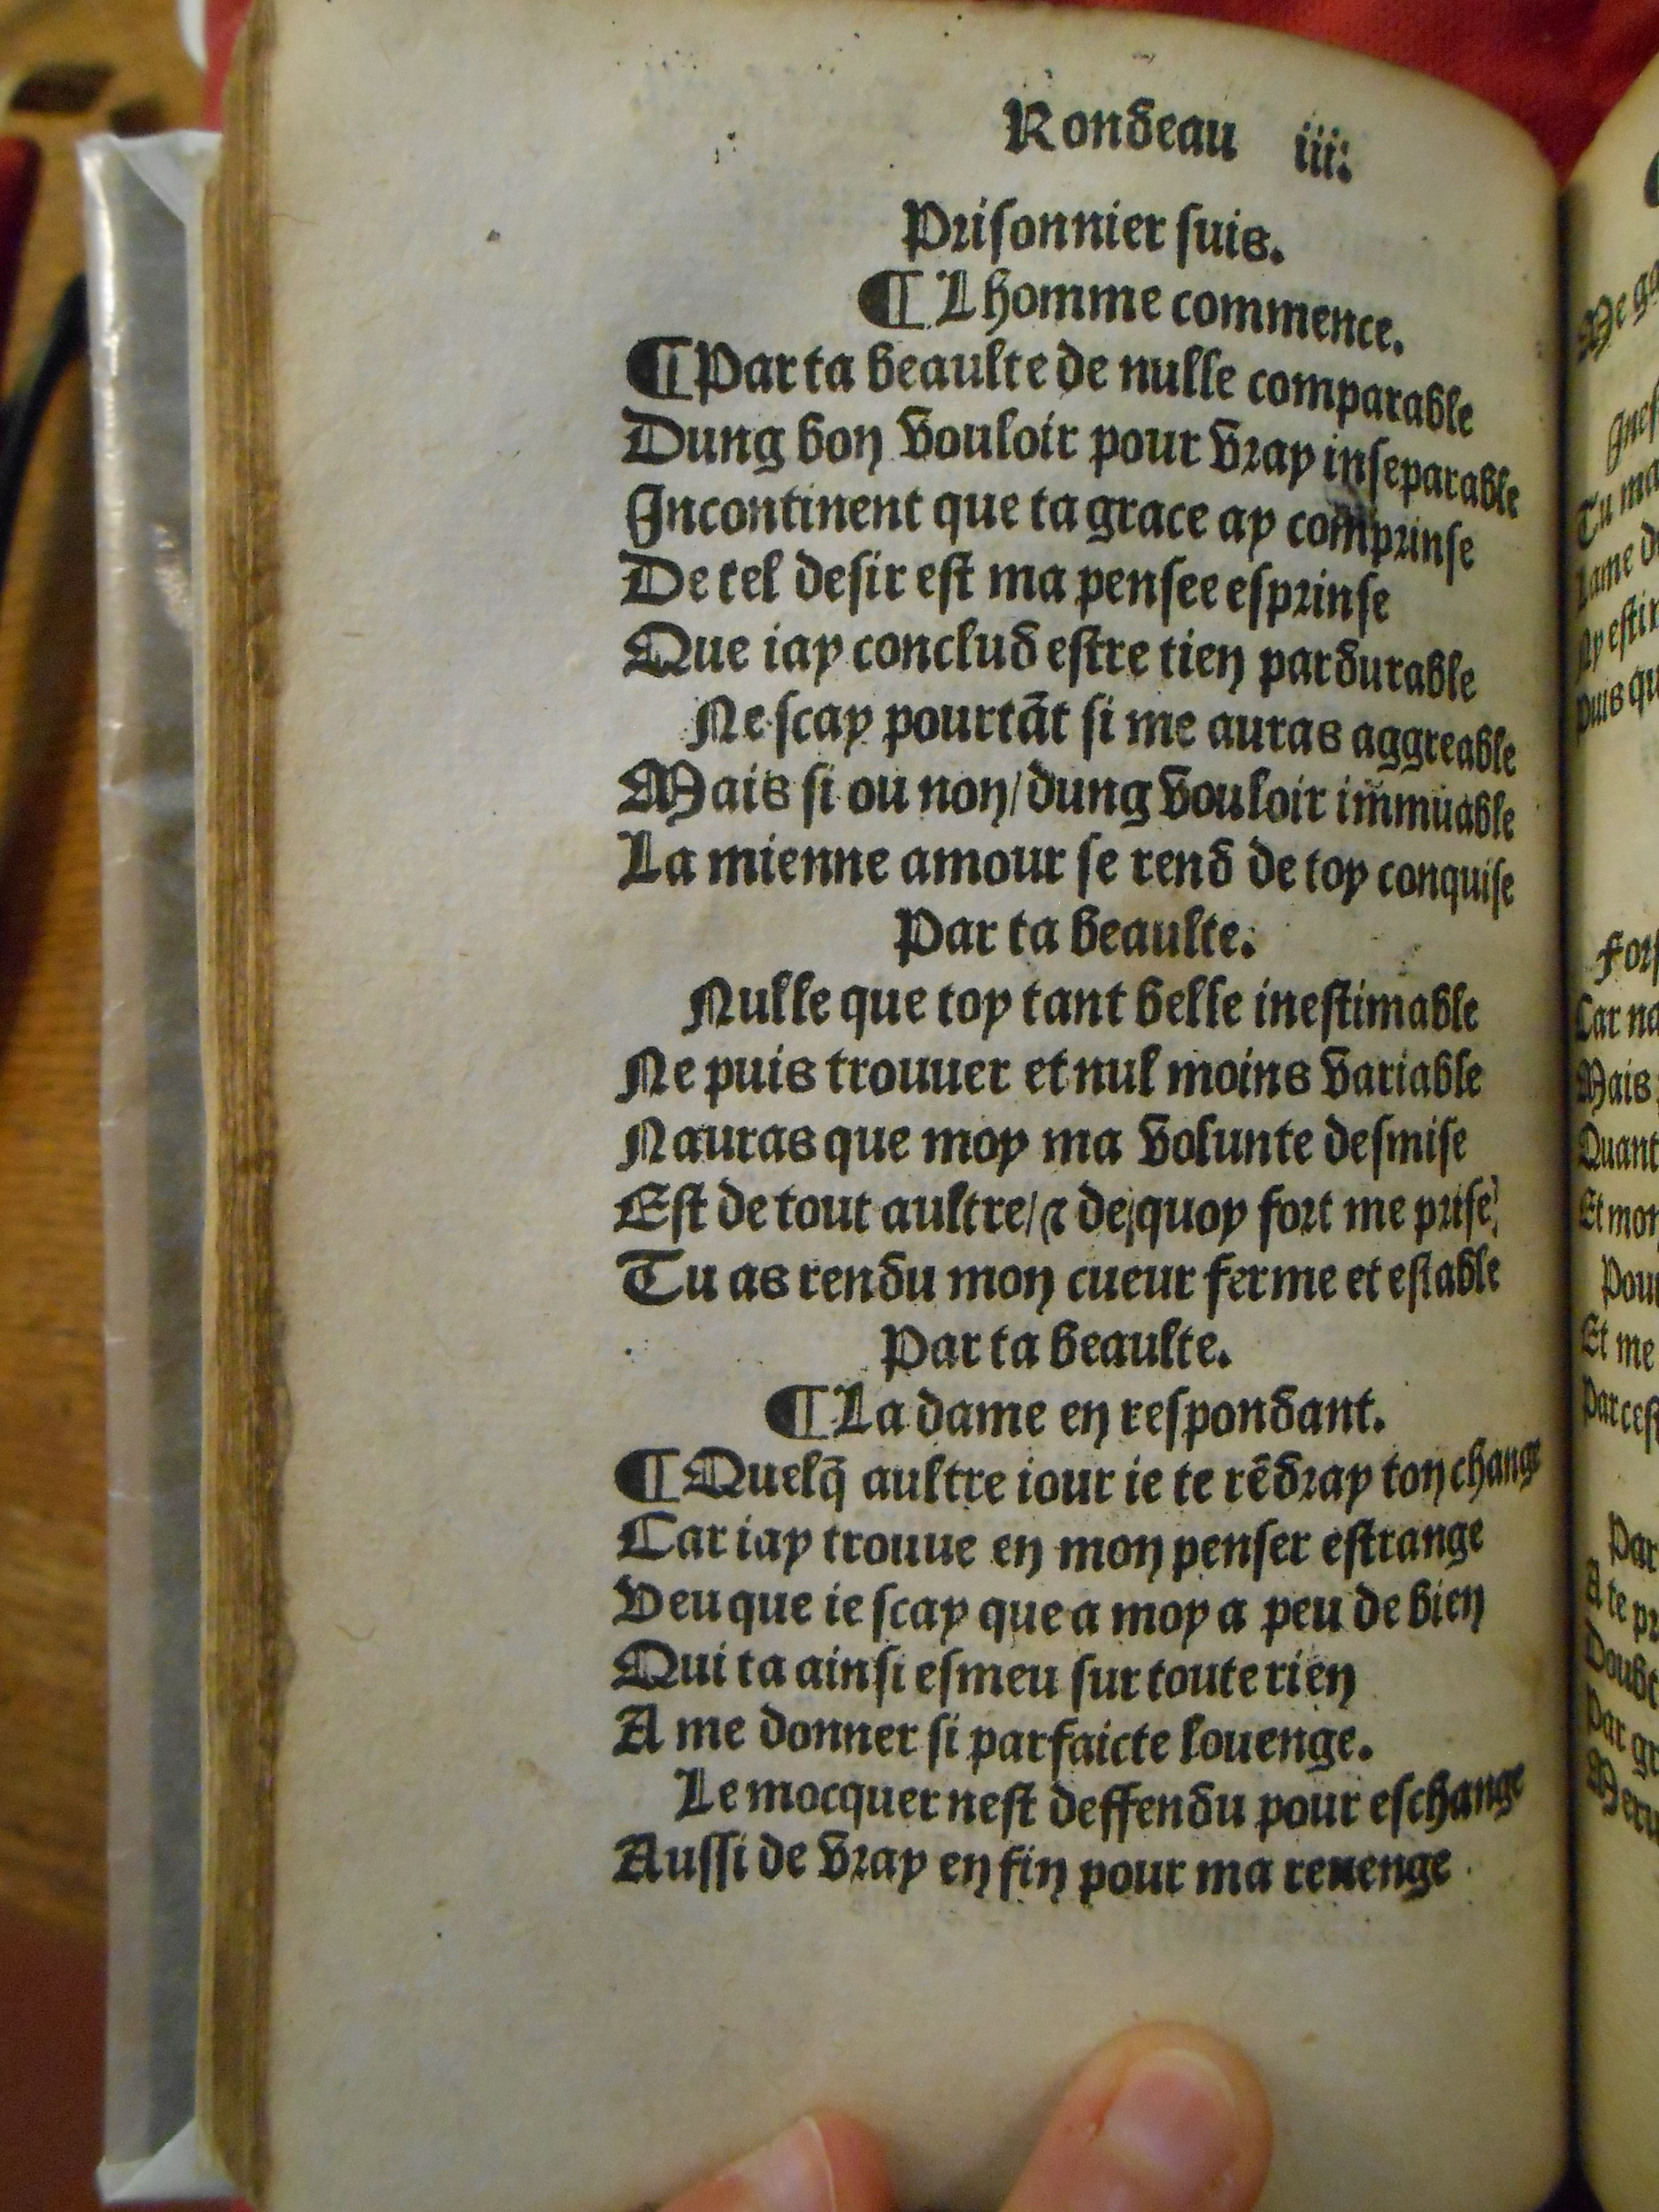 Rondeau iii.
Prisonnier suis.
¶ Lhomme commence.
¶ Par ta beaulte de nulle comparable
Dung bon vouloir pour vray inseparable
Incontinent que ta grace ay comprinse
De tel desir est ma pensee esprinse
Que iay conclud estre tien pardurable
Ne scay pourtãt si me auras aggreable
Mais si ou non/dung vouloir immuable
La mienne amour se rend de toy conquise
Par ta beaulte.
Nulle que toy tant belle inestimable
Ne puis trouuer et nul moins variable
Nauras que moy ma volunte desmise
Est de tout aultre/⁊ de quoy fort me prise
Tu as rendu mon cueur ferme et estable
Par ta beaulte.
¶ La dame en respondant.
¶ Quelq̃ aultre iour ie te rẽdray ton change
Car iay trouue en mon penser estrange
Veu que ie scay que a moy a peu de bien
Qui ta ainsi esmeu sur toute rien
A me donner si parfaicte louenge.
Le mocquer nest deffendu pour eschange
Aussi de vray en fin pour ma reuenge